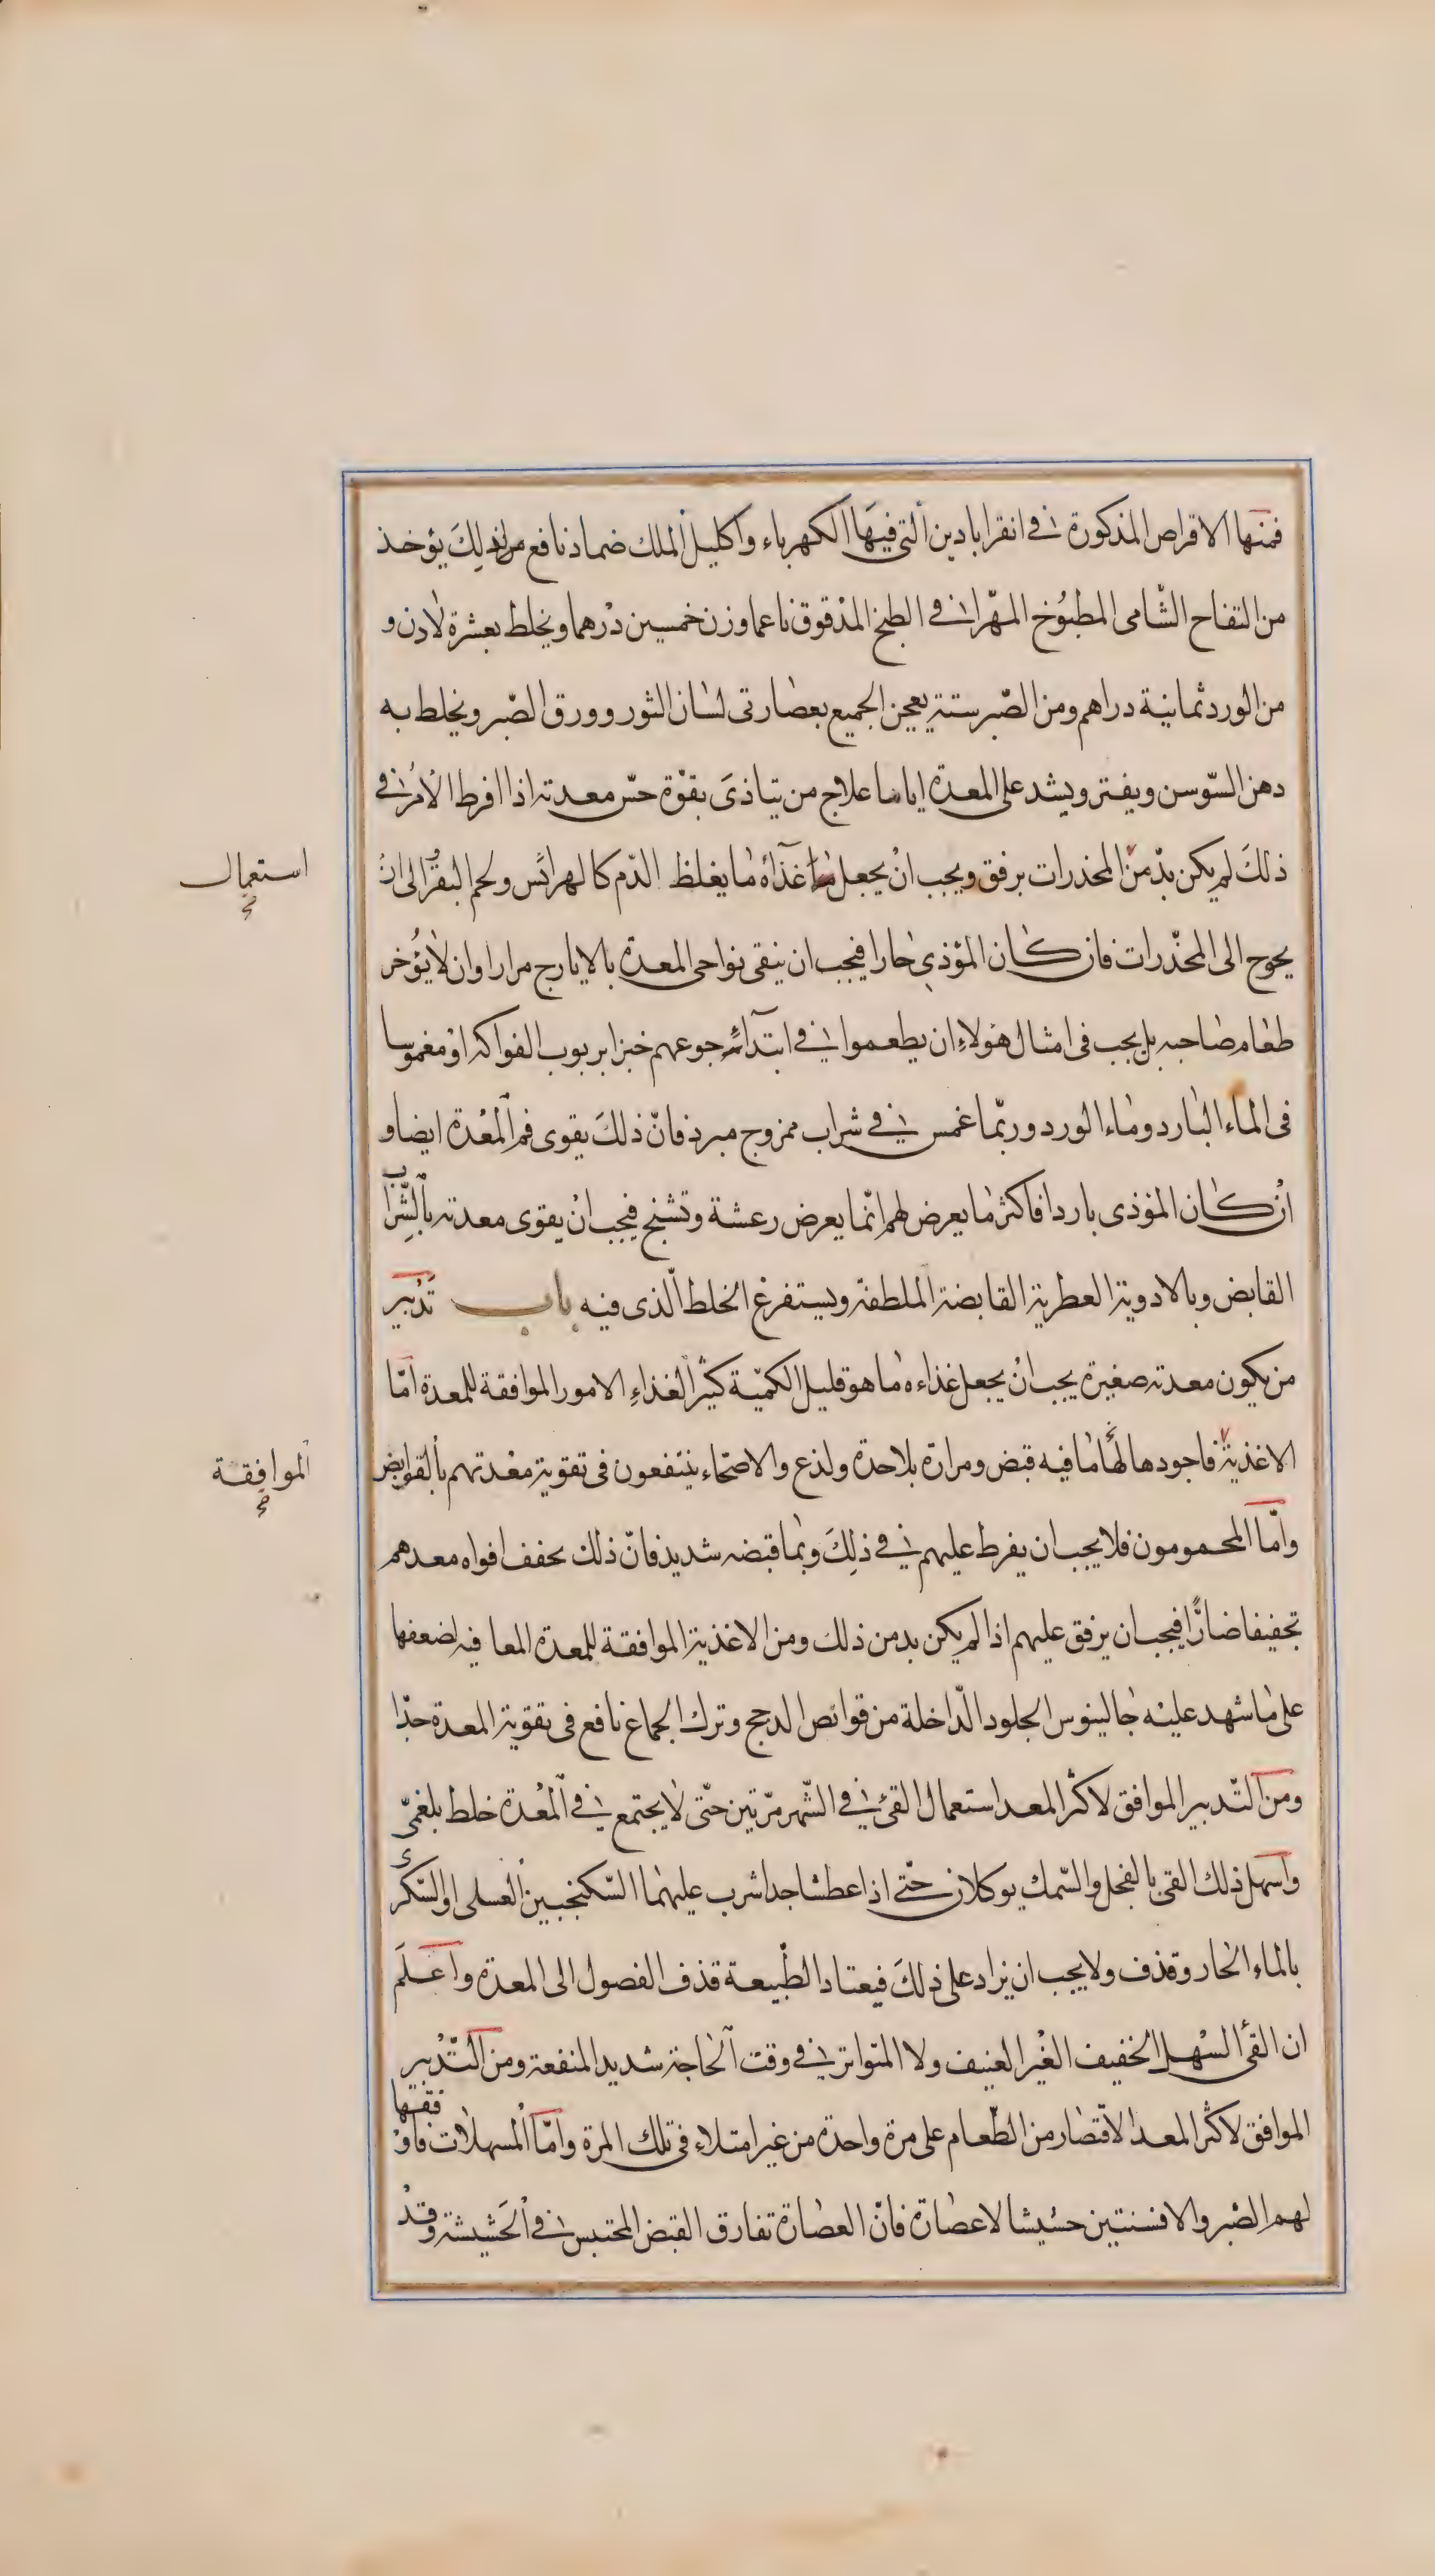 فمنها الاقراص المذكورة في انقراباذين التي فيها الكهرباء واكليل الملك ضماد نافع من ذلك يؤخذ
من التفاح الشامى المطبوخ المهرا في الطبخ المدقوق ناعما وزن خمسين درهما ويخلط بعشرة لادن و
من الورد ثمانية دراهم ومن الصبر ستة يعجن الجميع بعصارتى لسان الثور وورق الصبر ويخلط به
دهن السّوسن ويفتر ويشد على المعدة اياما علاج من يتاذى بقوّة حسّ معدته اذا افرط الامر في
ذلك لم يكن بدّ من المخدرات برفق ويجب ان يجعل غذاؤه ما يغلظ الدّم كالهرائس ولحم البقر الى ان
استعمال
يحوج الى المخدّرات فان كان المؤذي حارا فيجب ان ينقى نواحى المعدة بالايارج مرارا وان لا يؤخر
طعام صاحبه بل يجب فى امثال هؤلاء ان يطعموا في ابتداء جوعهم خبزا بربوب الفواكه او مغموسا
فى الماء البارد وماء الورد وربّما غمس في شراب ممزوج مبرد فانّ ذلك يقوى فم المعدة ايضا و
ان كان المؤذى باردا فاكثر ما يعرض لهم انّما يعرض رعشة وتشنج فيجب ان يقوى معدته بالشّراب
القابض وبالادوية العطرية القابضة الملطفة ويستفرغ الخلط الّذى فيه باب تدبير
من يكون معدته صغيرة يجب ان يجعل غذاءه ما هو قليل الكميّة كثير الغذاء الامور الموافقة للمعدة امّا
الاغذية فاجودها لها ما فيه قبض ومرارة بلا حدة ولذع والاصحّاء ينتفعون فى تقوية معدتهم بالقوابض
الموافقة
وامّا المحمومون فلا يجب ان يفرط عليهم في ذلك وبما قبضه شديد فانّ ذلك يجفف افواه معدهم
تجفيفا ضارّا فيجب ان يرفق عليهم اذا لم يكن بد من ذلك ومن الاغذية الموافقة للمعدة المعافيه لضعفها
على ما شهد عليه جالينوس الجلود الدّاخلة من قوانص الدجج وترك الجماع نافع فى تقوية المعدة جدّا
ومن التّدبير الموافق لاكثر المعد استعمال القئ في الشّهر مرّتين حتّى لا يجتمع في المعدة خلط بلغمىّ
واسهل ذلك القى بالفجل والسّمك يوكلان حتّى اذا عطشا جدا شرب عليهما السّكنجبين العسلى او السّكرى
بالماء الحار وقذف ولا يجب ان يزاد على ذلك فيعتاد الطّبيعة قذف الفصول الى المعدة واعلم
ان القئ السّهل الخفيف الغير العنيف ولا المتواتر في وقت الحاجة شديد المنفعة ومن التّدبير
الموافق لاكثر المعد الاقتصار من الطّعام على مرة واحدة من غير امتلاء فى تلك المرة وامّا المسهلات فاوفقها
لهم الصّبر والافسنتين حشيشا لا عصارة فانّ العصارة تفارق القبض المحتبس في الحشيشة وقد